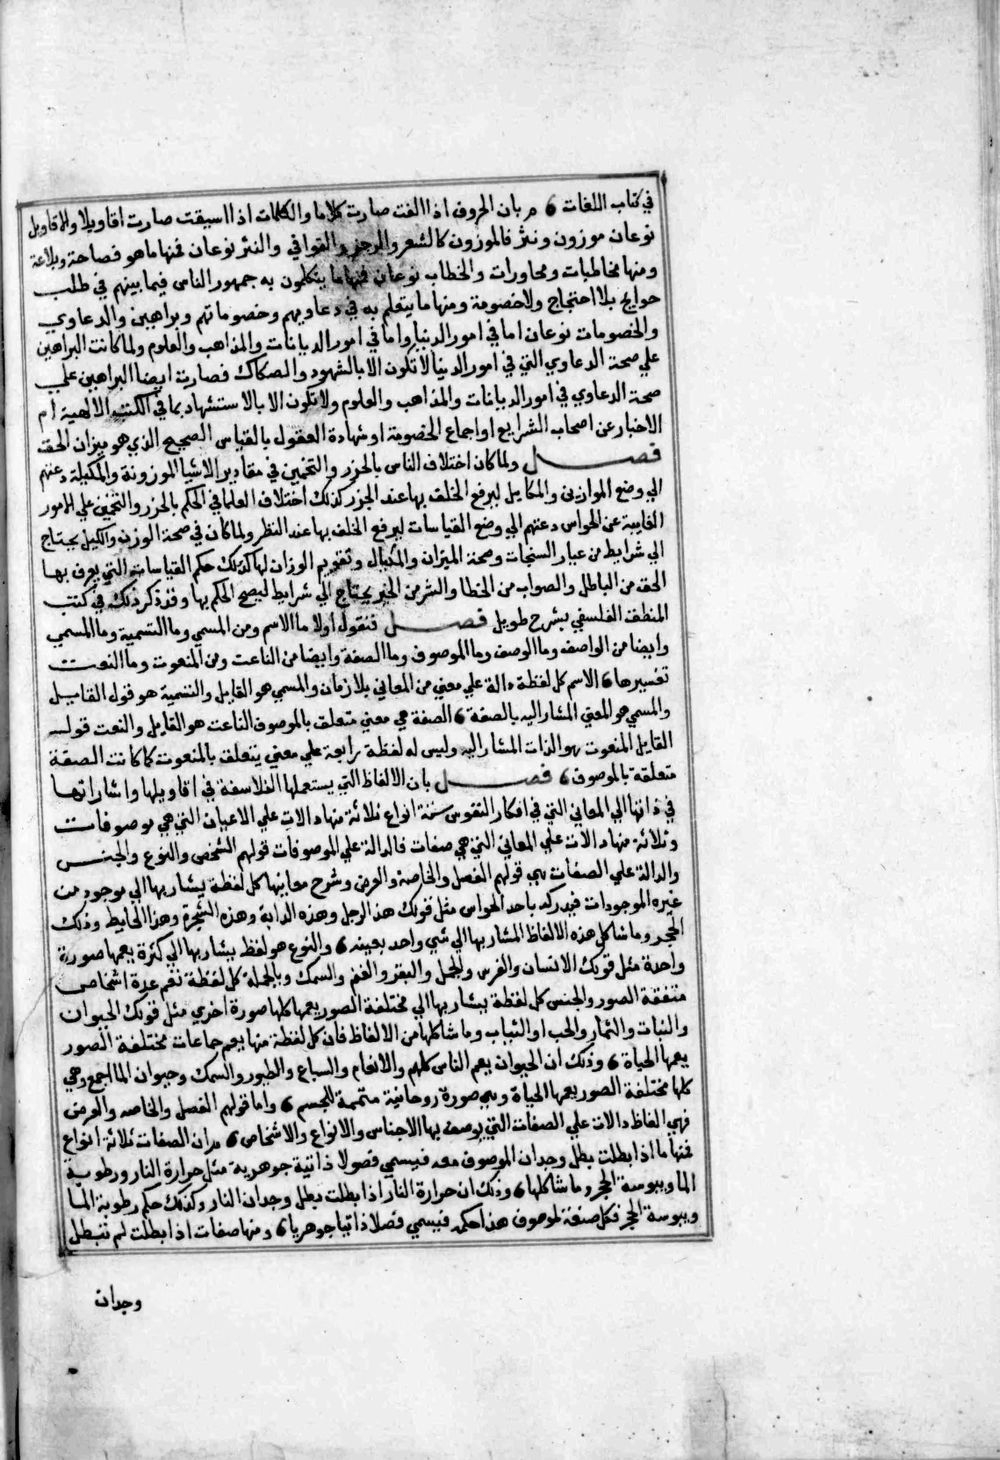 في كتاب اللغات 6 م بان الحروف اذا الفت صارت كلاما والكلمات اذا اسيقت صارت اقاويلا والاقاويل
نوعان موزون ونثر فالموزون كالشعر والرجز والقوافي والنثر نوعان فمنها ما هو فصاحة وبلاغة
ومنها مخاطبات ومحاورات والخطاب نوعان فمنها ما يتكلمون به جمهور الناس فيما بينهم في طلب
حوايج بلا احتجاج ولا خصومة ومنها ما يتعلم به في دعاويهم وخصوماتهم وبراهين والدعاوي
والخصومات نوعان اما في امور الدنيا واما في امور الديانات والمذاهب والعلوم ولما كانت البراهين
علي صحة الدعاوي التي في امور الدنيا لا تكون الا بالشهود والصكاك فصارت ايضا البراهين علي
صحة الدعاوي في امور الديانات والمذاهب والعلوم ولا تكون الا بالاستشهاد بما في الكتب الالهية ام
الاخبار عن اصحاب الشرايع او اجماع الخصومة او شهادة العقول بالقياس الصحيح الذي هو ميزان الحق
فصل ولما كان اختلاف الناس بالحزر والتخمين في مقادير الاشيا الموزونة والمكيلة دعتهم
الي وضع الموازين والمكاييل ليرفع الخلف بها عند الحزر كذلك اختلاف العلما في الحكم بالحزر والتخمين علي الامور
الغايبة عن الحواس دعتهم الي وضع القياسات ليرفع الخلف بها عند النظر ولما كان في صحة الوزن والكيل يحتاج
الي شرايط من عيار السنجات وصحة الميزان والمكيال وتقويم الوزان لها كذلك حكم القياسات التي يعرف بها
الحق من الباطل والصواب من الخطا والشر من الخير يحتاج الي شرايط ليصح الحكم بها وقد ذكر ذلك في كتب
المنطق الفلسفي بشرح طويل فصل فنقول اولا ما الاسم ومن المسمي وما التسمية وما المسمي
وايضا من الواصف وما الوصف وما الموصوف وما الصفة وايضا من الناعت ومن المنعوت وما النعت
تفسيرها 6 الاسم كل لفظة دالة علي معني من المعاني بلا زمان والمسمي هو القايل والتسمية هو قول القايل
والمسمي هو المعني المشار اليه بالصفة 6 الصفة هي معني متعلق بالموصوف الناعت هو القايل والنعت قوله
القايل المنعوت هو الذات المشار اليه وليس له لفظة رابعة علي معني يتعلق بالمنعوت كما كانت الصفة
متعلقة بالموصوف 6 فصل بان الالفاظ التي يستعملها الفلاسفة في اقاويلها واشاراتها
في ذاتها الي المعاني التي في افكار النفوس ستة انواع ثلاثة منها دالات علي الاعيان التي هي موصوفات
وثلاثة منها دالات علي المعاني التي هي صفات فالدالة علي الموصوفات قولهم الشخص والنوع والجنس
والدالة علي الصفات هي قولهم الفصل والخاصة والعرض وشرح معانيها كل لفظة يشار بها الي موجود من
غيره الموجودات فيدركه باحد الحواس مثل قولك هذا الرجل وهذه الدابة وهذه الشجرة وهذا الحايط وذلك
الحجر وما شاكل هذه الالفاظ المشار بها الي شي واحد بعينه 6 والنوع هو لفظ يشار بها الي كثرة يعمها صورة
واحدة مثل قولك الانسان والفرس والجمل والبقر والغنم والسمك وبالجملة كل لفظة تعم عدة اشخاص
متفقة الصور والجنس كل لفظة يشار بها الي مختلفة الصور يعمها كلها صورة اخري مثل قولك الحيوان
والنبات والثمار والحب او النبات وما شاكلها من الالفاظ فان كل لفظة منها يعم جماعات مختلفة الصور
يعمها الحياة 6 وذلك ان الحيوان يعم الناس كلهم والانعام والسباع والطيور والسمك وحيوان الما اجمع وهي
كلها مختلفة الصور يعمها الحياة وهي صورة روحانية متممة للجسم 6 واما قولهم الفصل والخاصه والعرض
فهي الفاظ دالات علي الصفات التي يوصف بها الاجناس والانواع والاشخاص 6 م ان الصفات ثلاثة انواع
فمنها ما اذا بطلت بطل وجدان الموصوف معه فيسمي فصولا ذاتية جوهرية مثل حرارة النار ورطوبة
الما ويبوسة الحجر وما شاكلها 6 وذلك ان حرارة النار اذا بطلت بطل وجدان النار وكذلك حكم رطوبة الما
ويبوسة الحجر فكل صفة لموصوف هذا حكمه فيسمي فصلا ذاتيا جوهريا 6 ومنها صفات اذا بطلت لم تبطل
وجدان